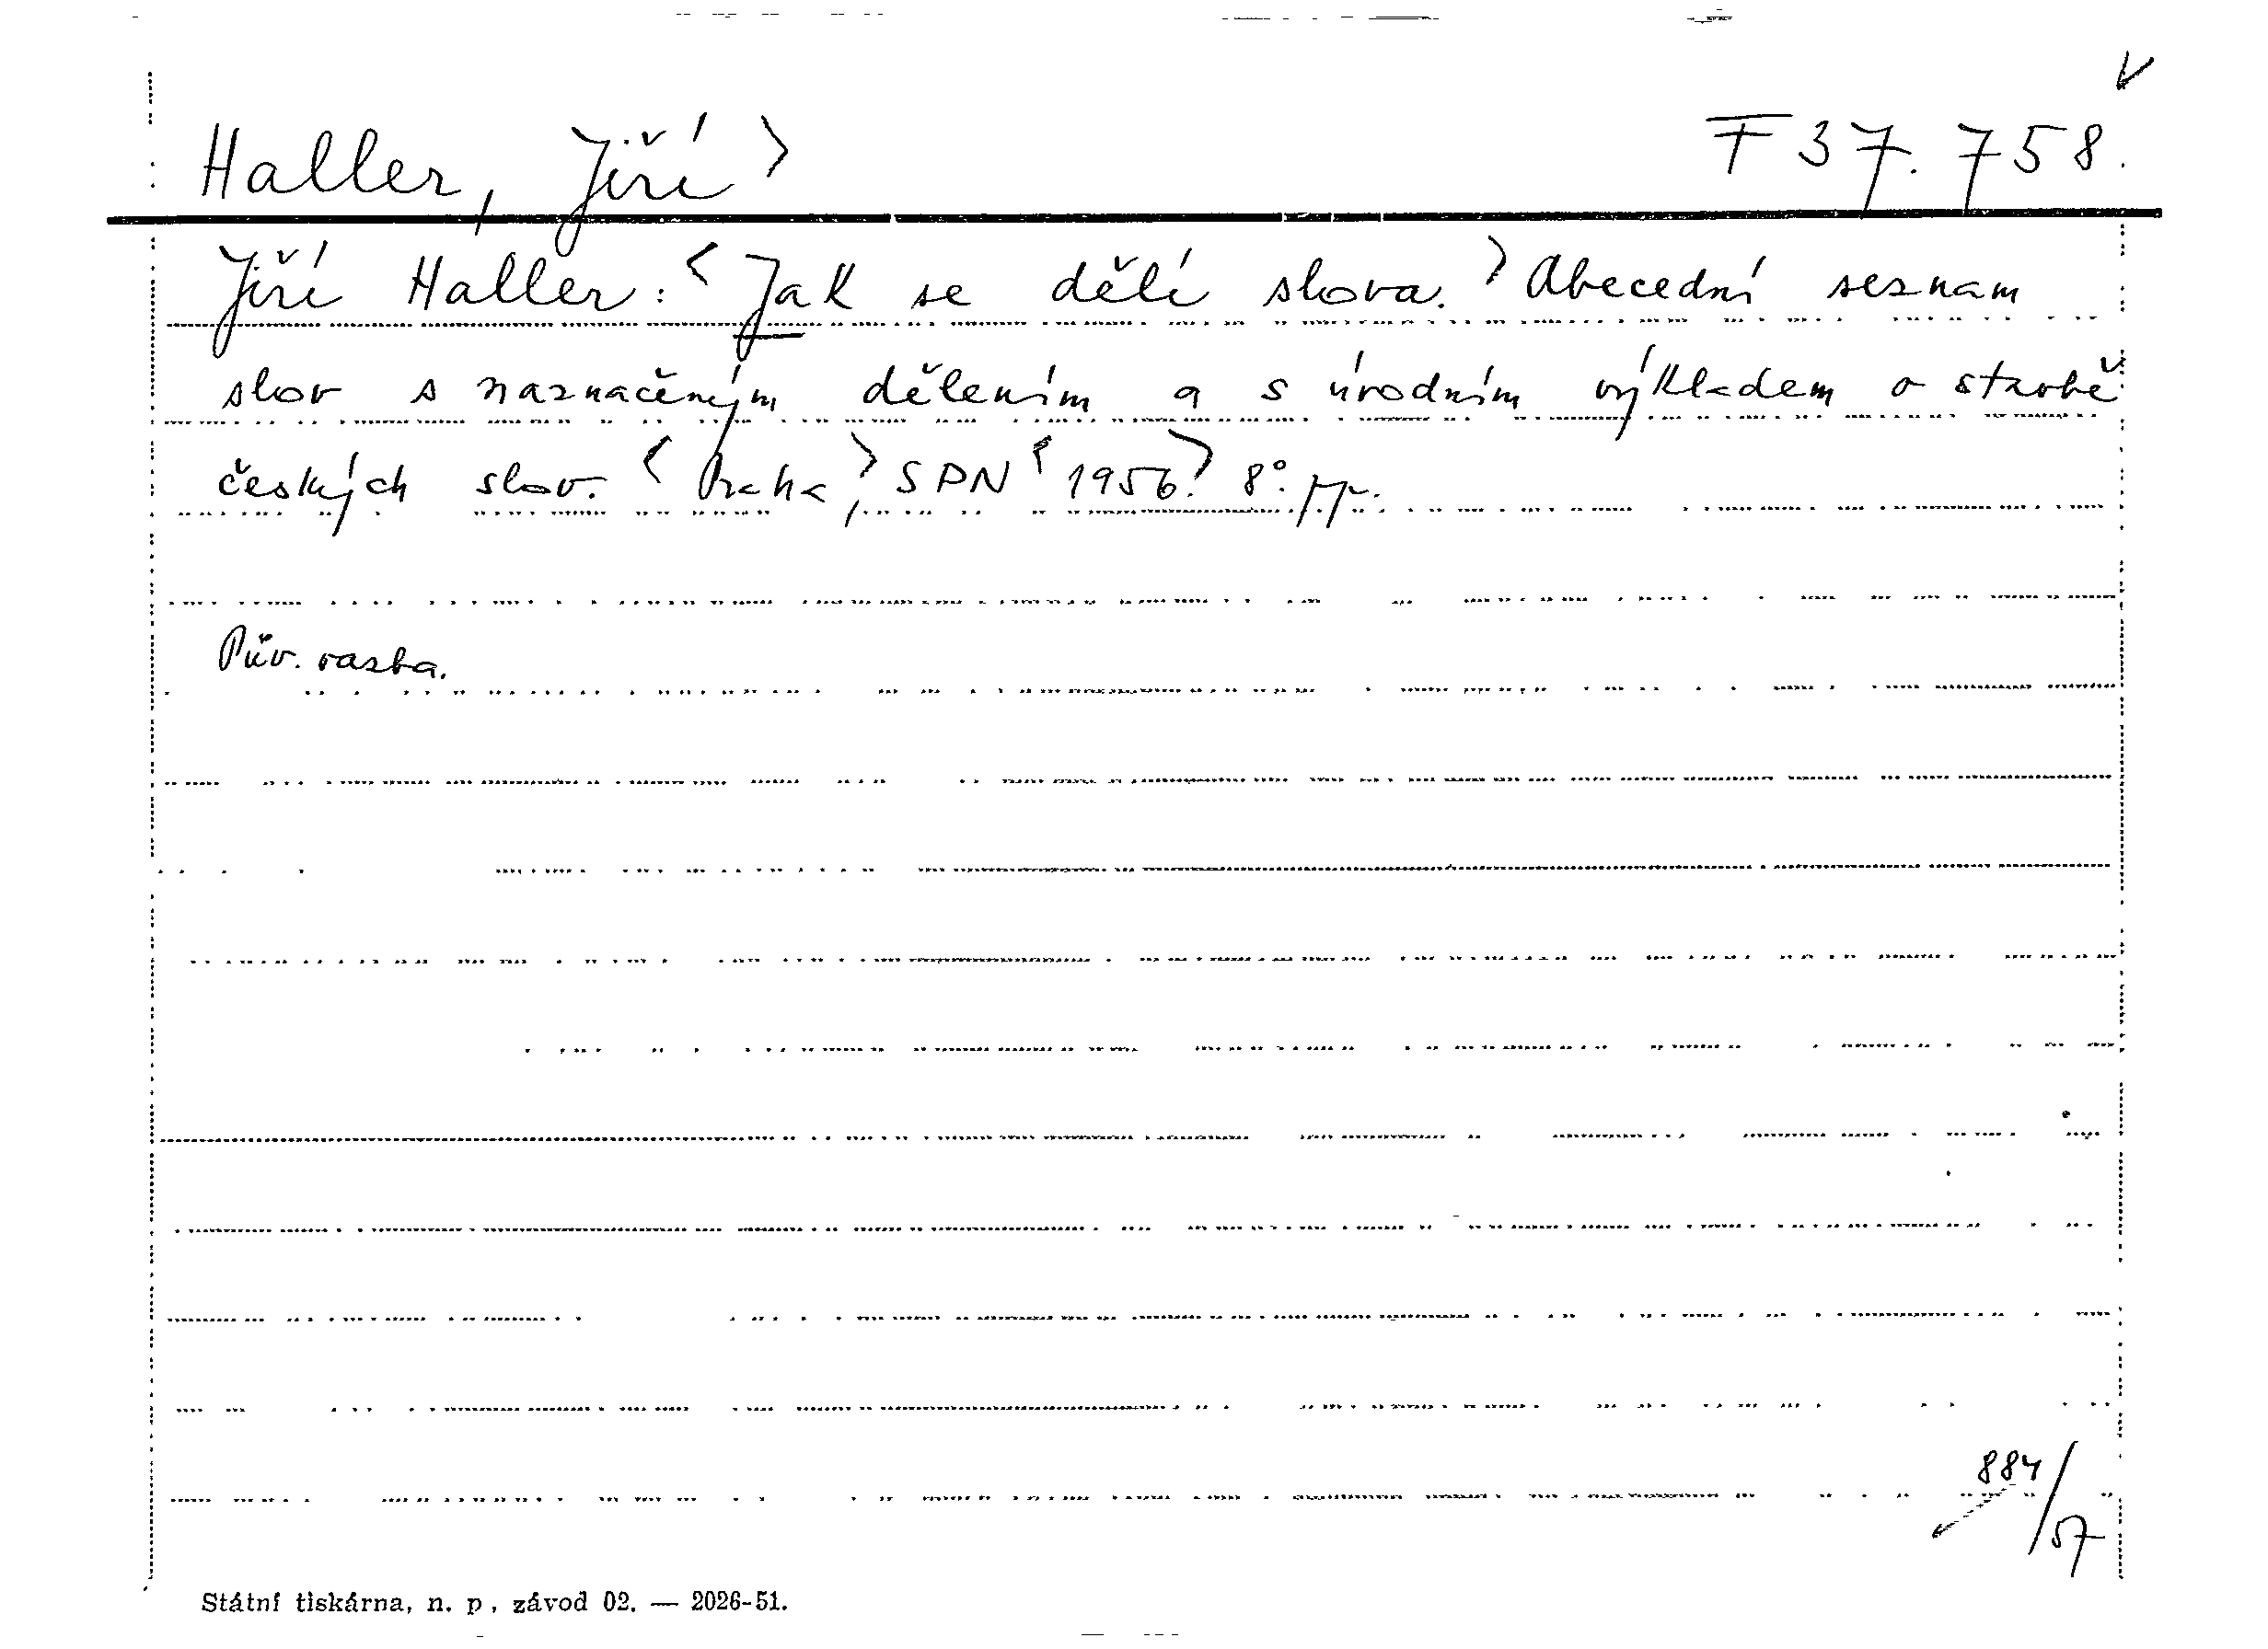 Haller, Jiří > F 37.758.
Jiří Haller: <Jak se dělí slova.> Abecední seznam
slov s naznačeným dělením a s úvodním výkladem o stavbě
českých slov. <Praha>, SPN <1956.> 8°.
Pův. vazba.
884/57
Státní tiskárna, n. p., závod 02. — 2026-51.